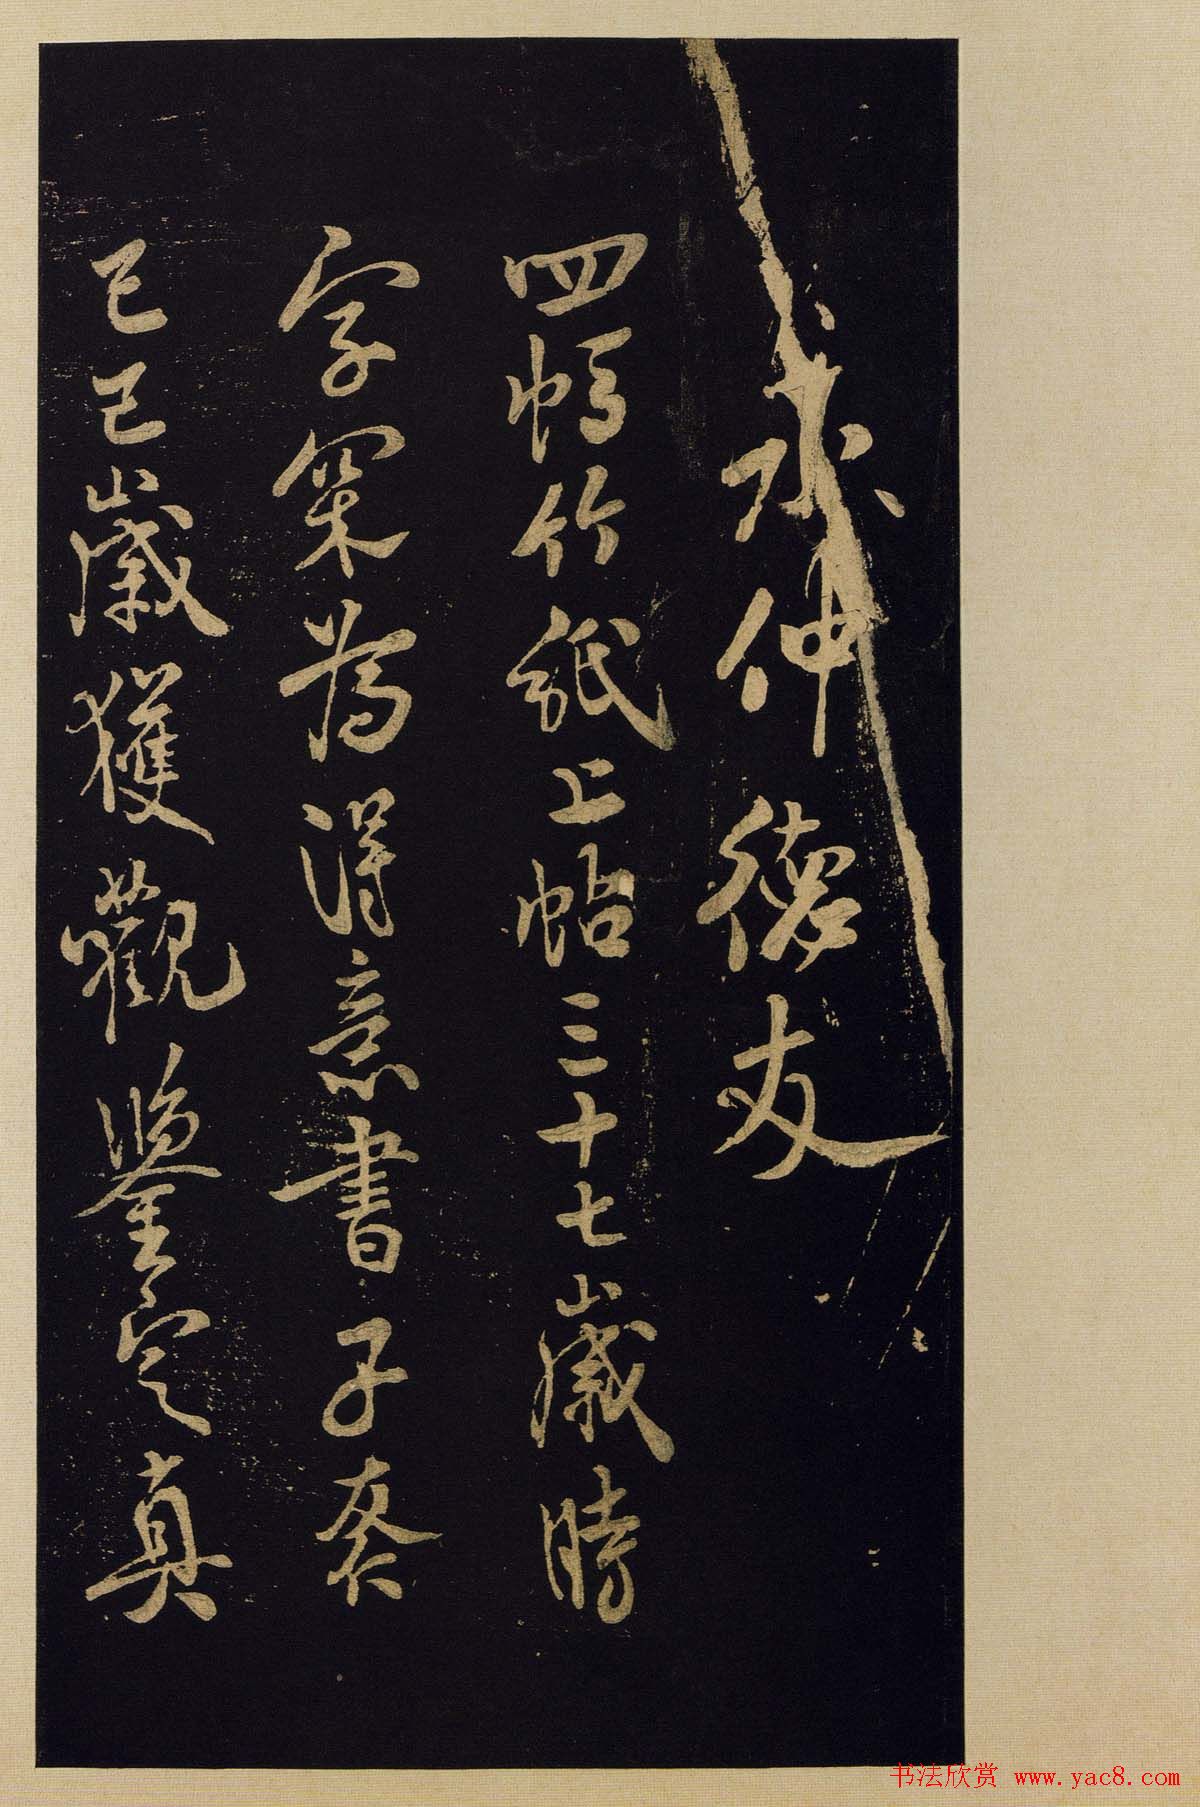 仲德友
四竹紙上帖三十七歲時
字為得意書子
己巳歲獲觀鑒定真
书法欣赏 www.yac8.com